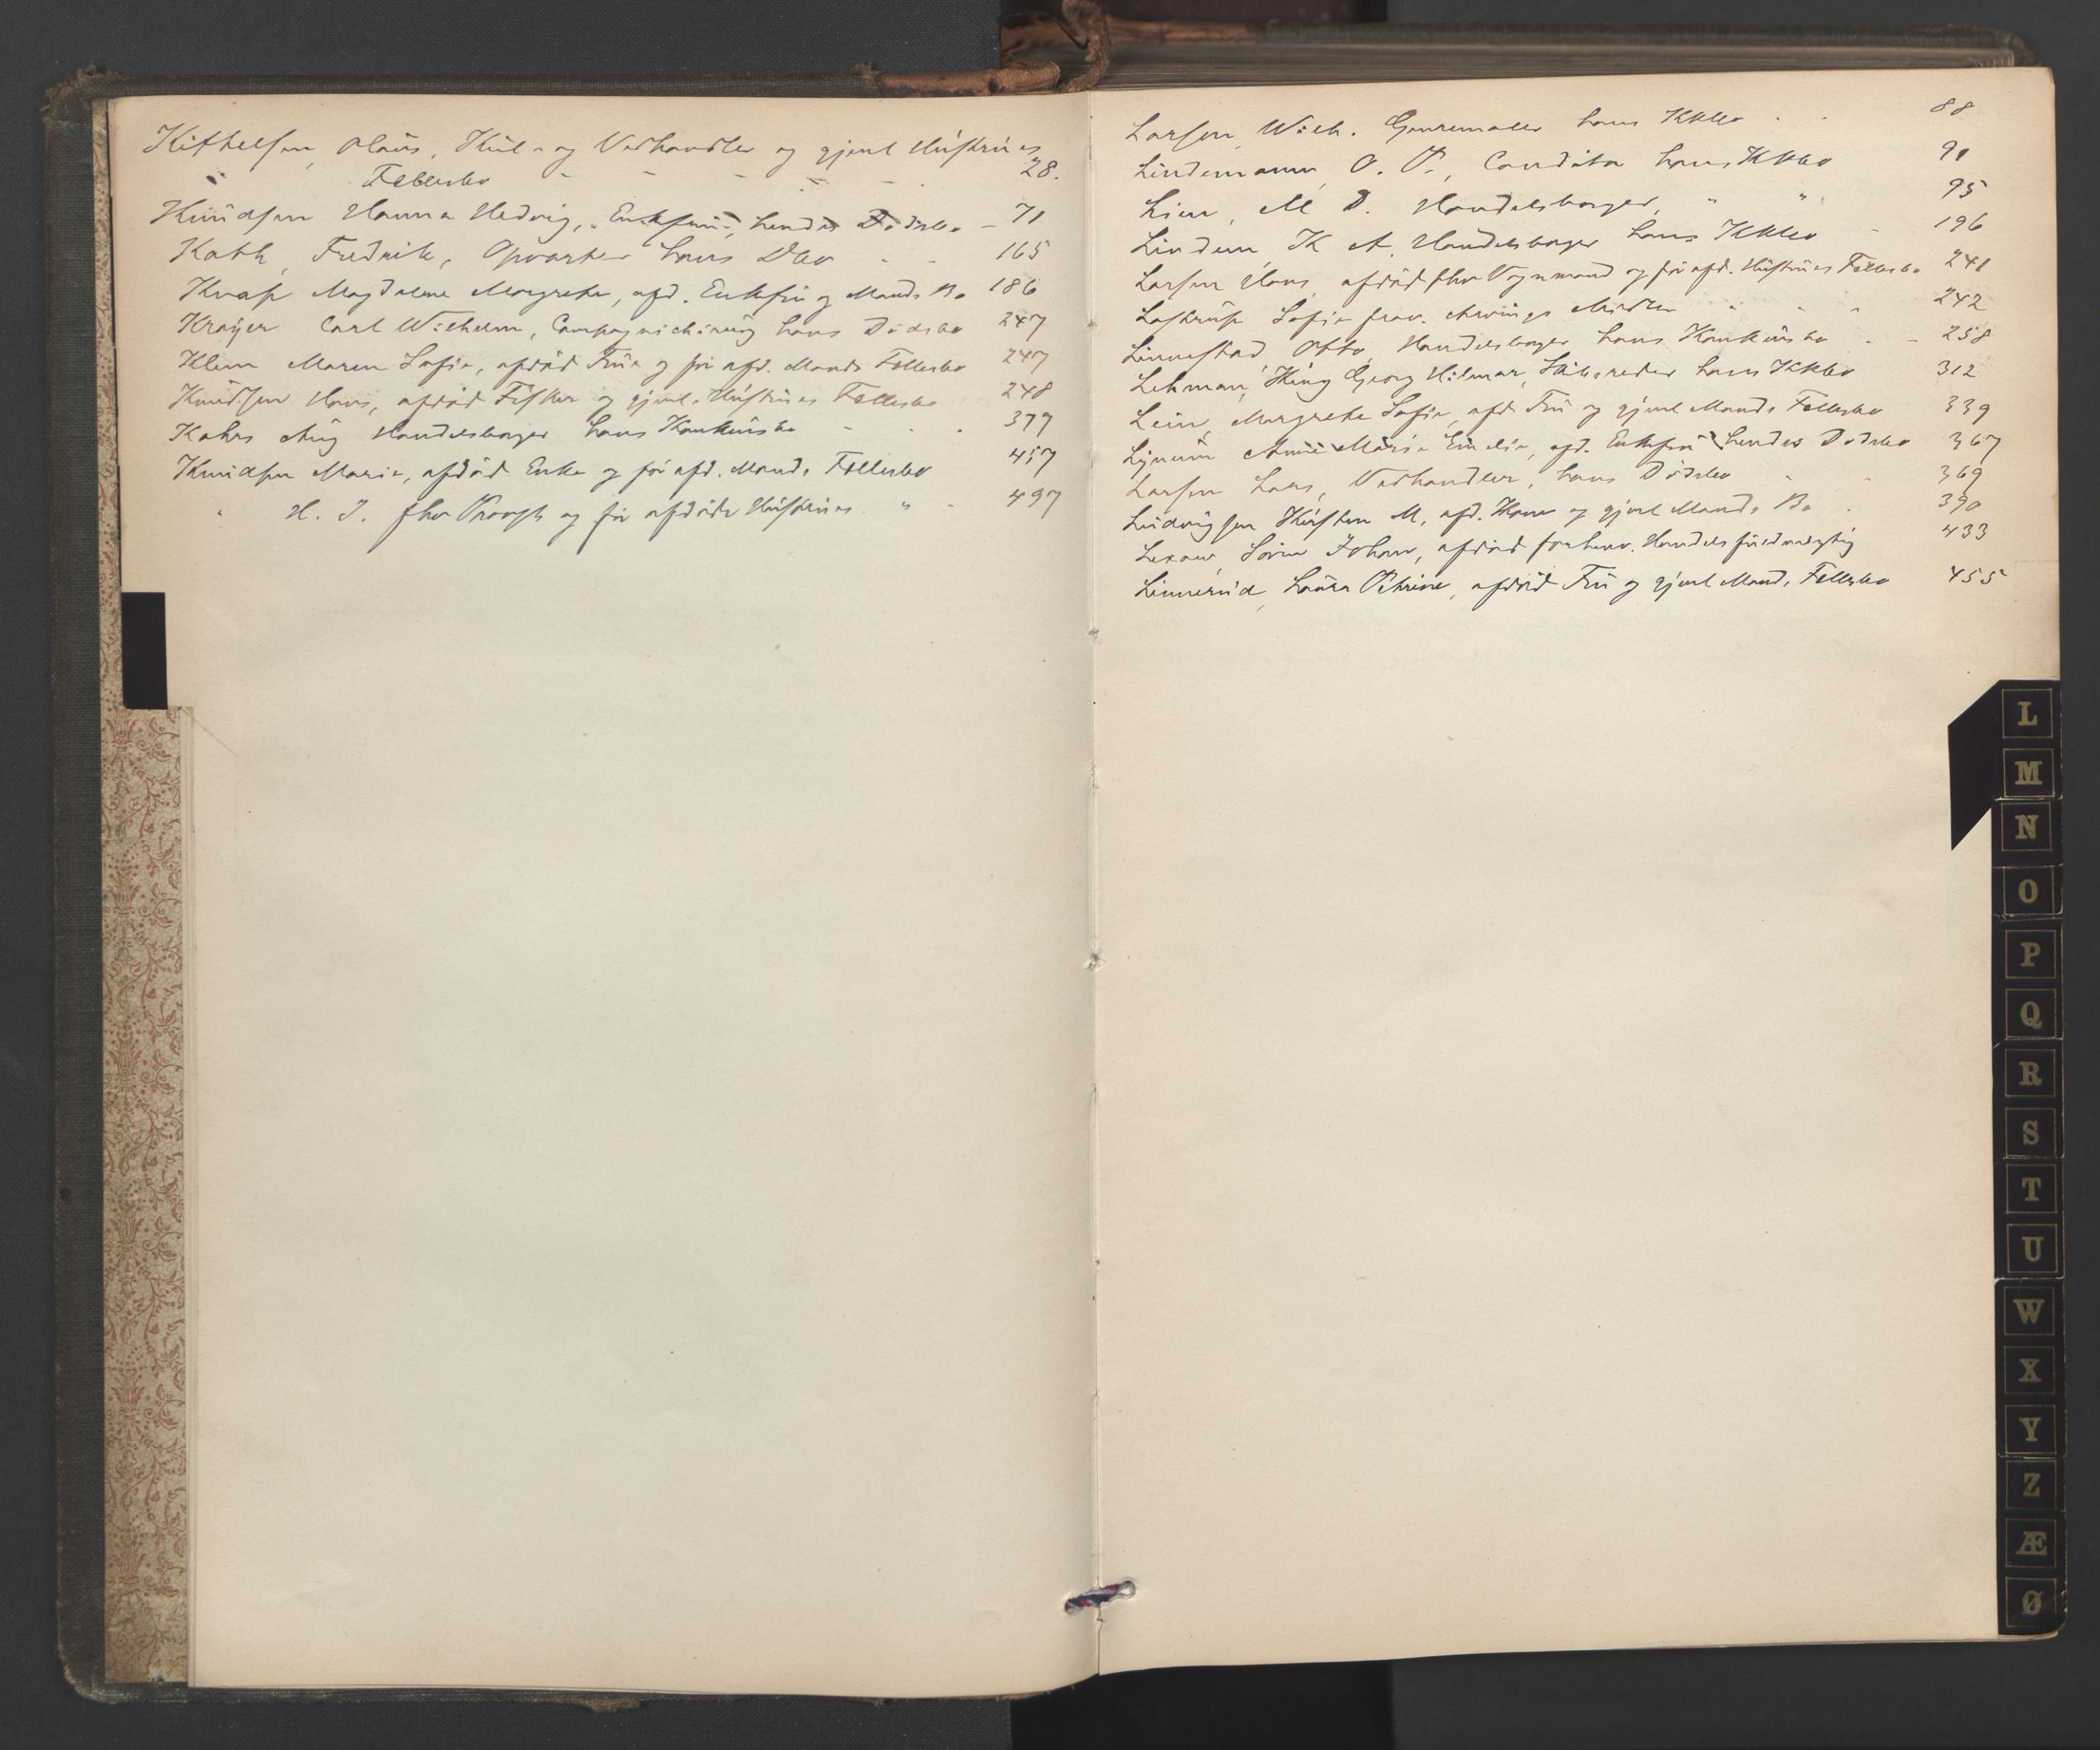 Kittelsen, Olaus, Kul- og Vedhandler og gjenl Hústrúes
" Fællesbo - - - - - 28.
Knúdsen Hanna Hedvig, Enkefrú, hendes Dødsbo - 71
Kath, Fredrik, Opvarter hans Dbo - - 165
Knap Magdalene Margrethe, afd. Enkefrú og Mands Bo 186
Krøyer Carl Wilhelm, hans Dødsbo 247
Klem Maren Sofie, afdød Frúe og før afd. Mands Fællesbo 247
Knúdsen Hans, afdød Fisker og gjenl. Hústrúes Fællesbo 248
Kahrs Aúg Handelsborger hans Konkúrsbo - - - 377
Knúdsen Marie, afdød Enke og før afd. Mands Fællesbo 457
" H. J. fhv Provst og før afdøde Hústrúes " - 497
Larsen, Wilh. Genremaler hans Kkbo - - 88
Lindemann, O. P., Conditor hans Kkbo 91
Lien, M D. Handelsborger, " " 95
Lindem, K A. Handelsborger hans Kkbo - 196
Larsen Hans, afdød fhv Vognmand og før afd. Hústrúes Fællesbo 241
Lastrúp Sofie - - - 242
Linnestad, Otto, Handelsborger hans Konkúrsbo - - 258
Lehman, Georg Hilmar, Skibsreder hans Kkbo 312
Lein, Margrethe Sofie, afd Frú og gjenl Mands Fællesbo 339
Lynúm Anne Marie Emelie, afd. Enkefrú hendes Dødsbo 367
Larsen Lars, Vedhandler, hans Dødsbo - - 369
Lúdvigsen Kirsten M, afd. Kone og gjenl Mands Bo - 390
Lexow, Søren Johan, afdød forhenv. Handelsfúldmægtig 433
Linnerúd, Laura Petrine, afdød Frú og gjenl Mands Fællesbo 455
L
M
N
O
P
Q
R
S
T
U
W
X
Y
Z
Æ
Ø